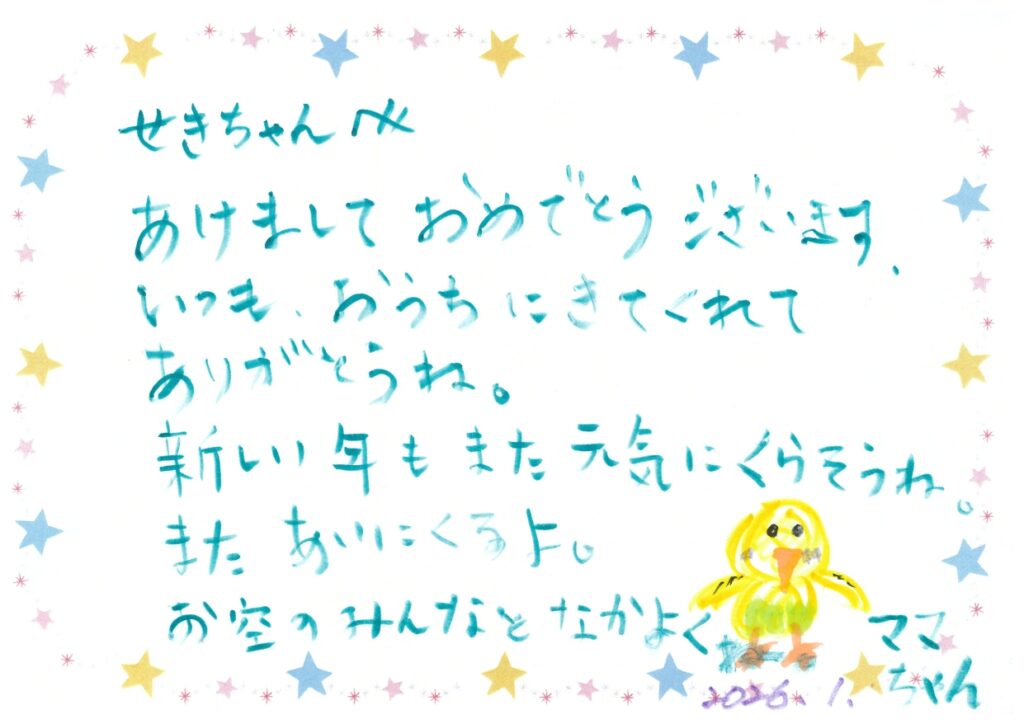 せきちゃんへ
あけましておめでとうございます、
いつも、おうちにきてくれて
ありがとうね。
新しい年もまた元気にくらそうね。
またあいにくるよ。
お空のみんなとなかよくね
ママ
ちゃん
2026.1.